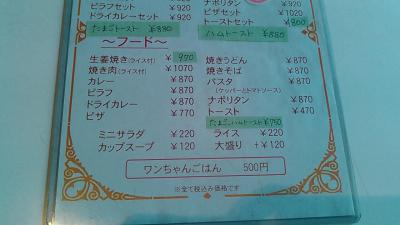 ピラフセット ¥920
ドライカレーセット ¥920
たまごトースト ¥880
ナポリタン ¥920
ピザセット ¥920
トーストセット ¥800
ハムトースト ¥880
〜フード〜
生姜焼き(ライス付) ¥970
焼き肉(ライス付) ¥1070
カレー ¥870
ピラフ ¥870
ドライカレー ¥870
ピザ ¥770
ミニサラダ ¥220
カップスープ ¥120
焼きうどん ¥870
焼きそば ¥870
パスタ ¥870
(ケッパーとトマトソース)
ナポリタン ¥870
トースト ¥470
たまごハムトースト ¥750
ライス ¥220
大盛り +¥120
ワンちゃんごはん 500円
※全て税込み価格です